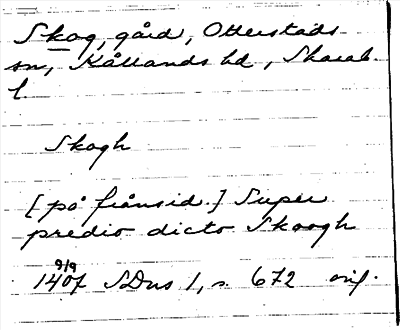 Skog, gård, Otterstads
sn, Kållands hd, Skarab.
l.
Skogh
[på frånsid.] Super
predio dicto Skoogh
9/9
1407 SDns 1, s. 672 orig.